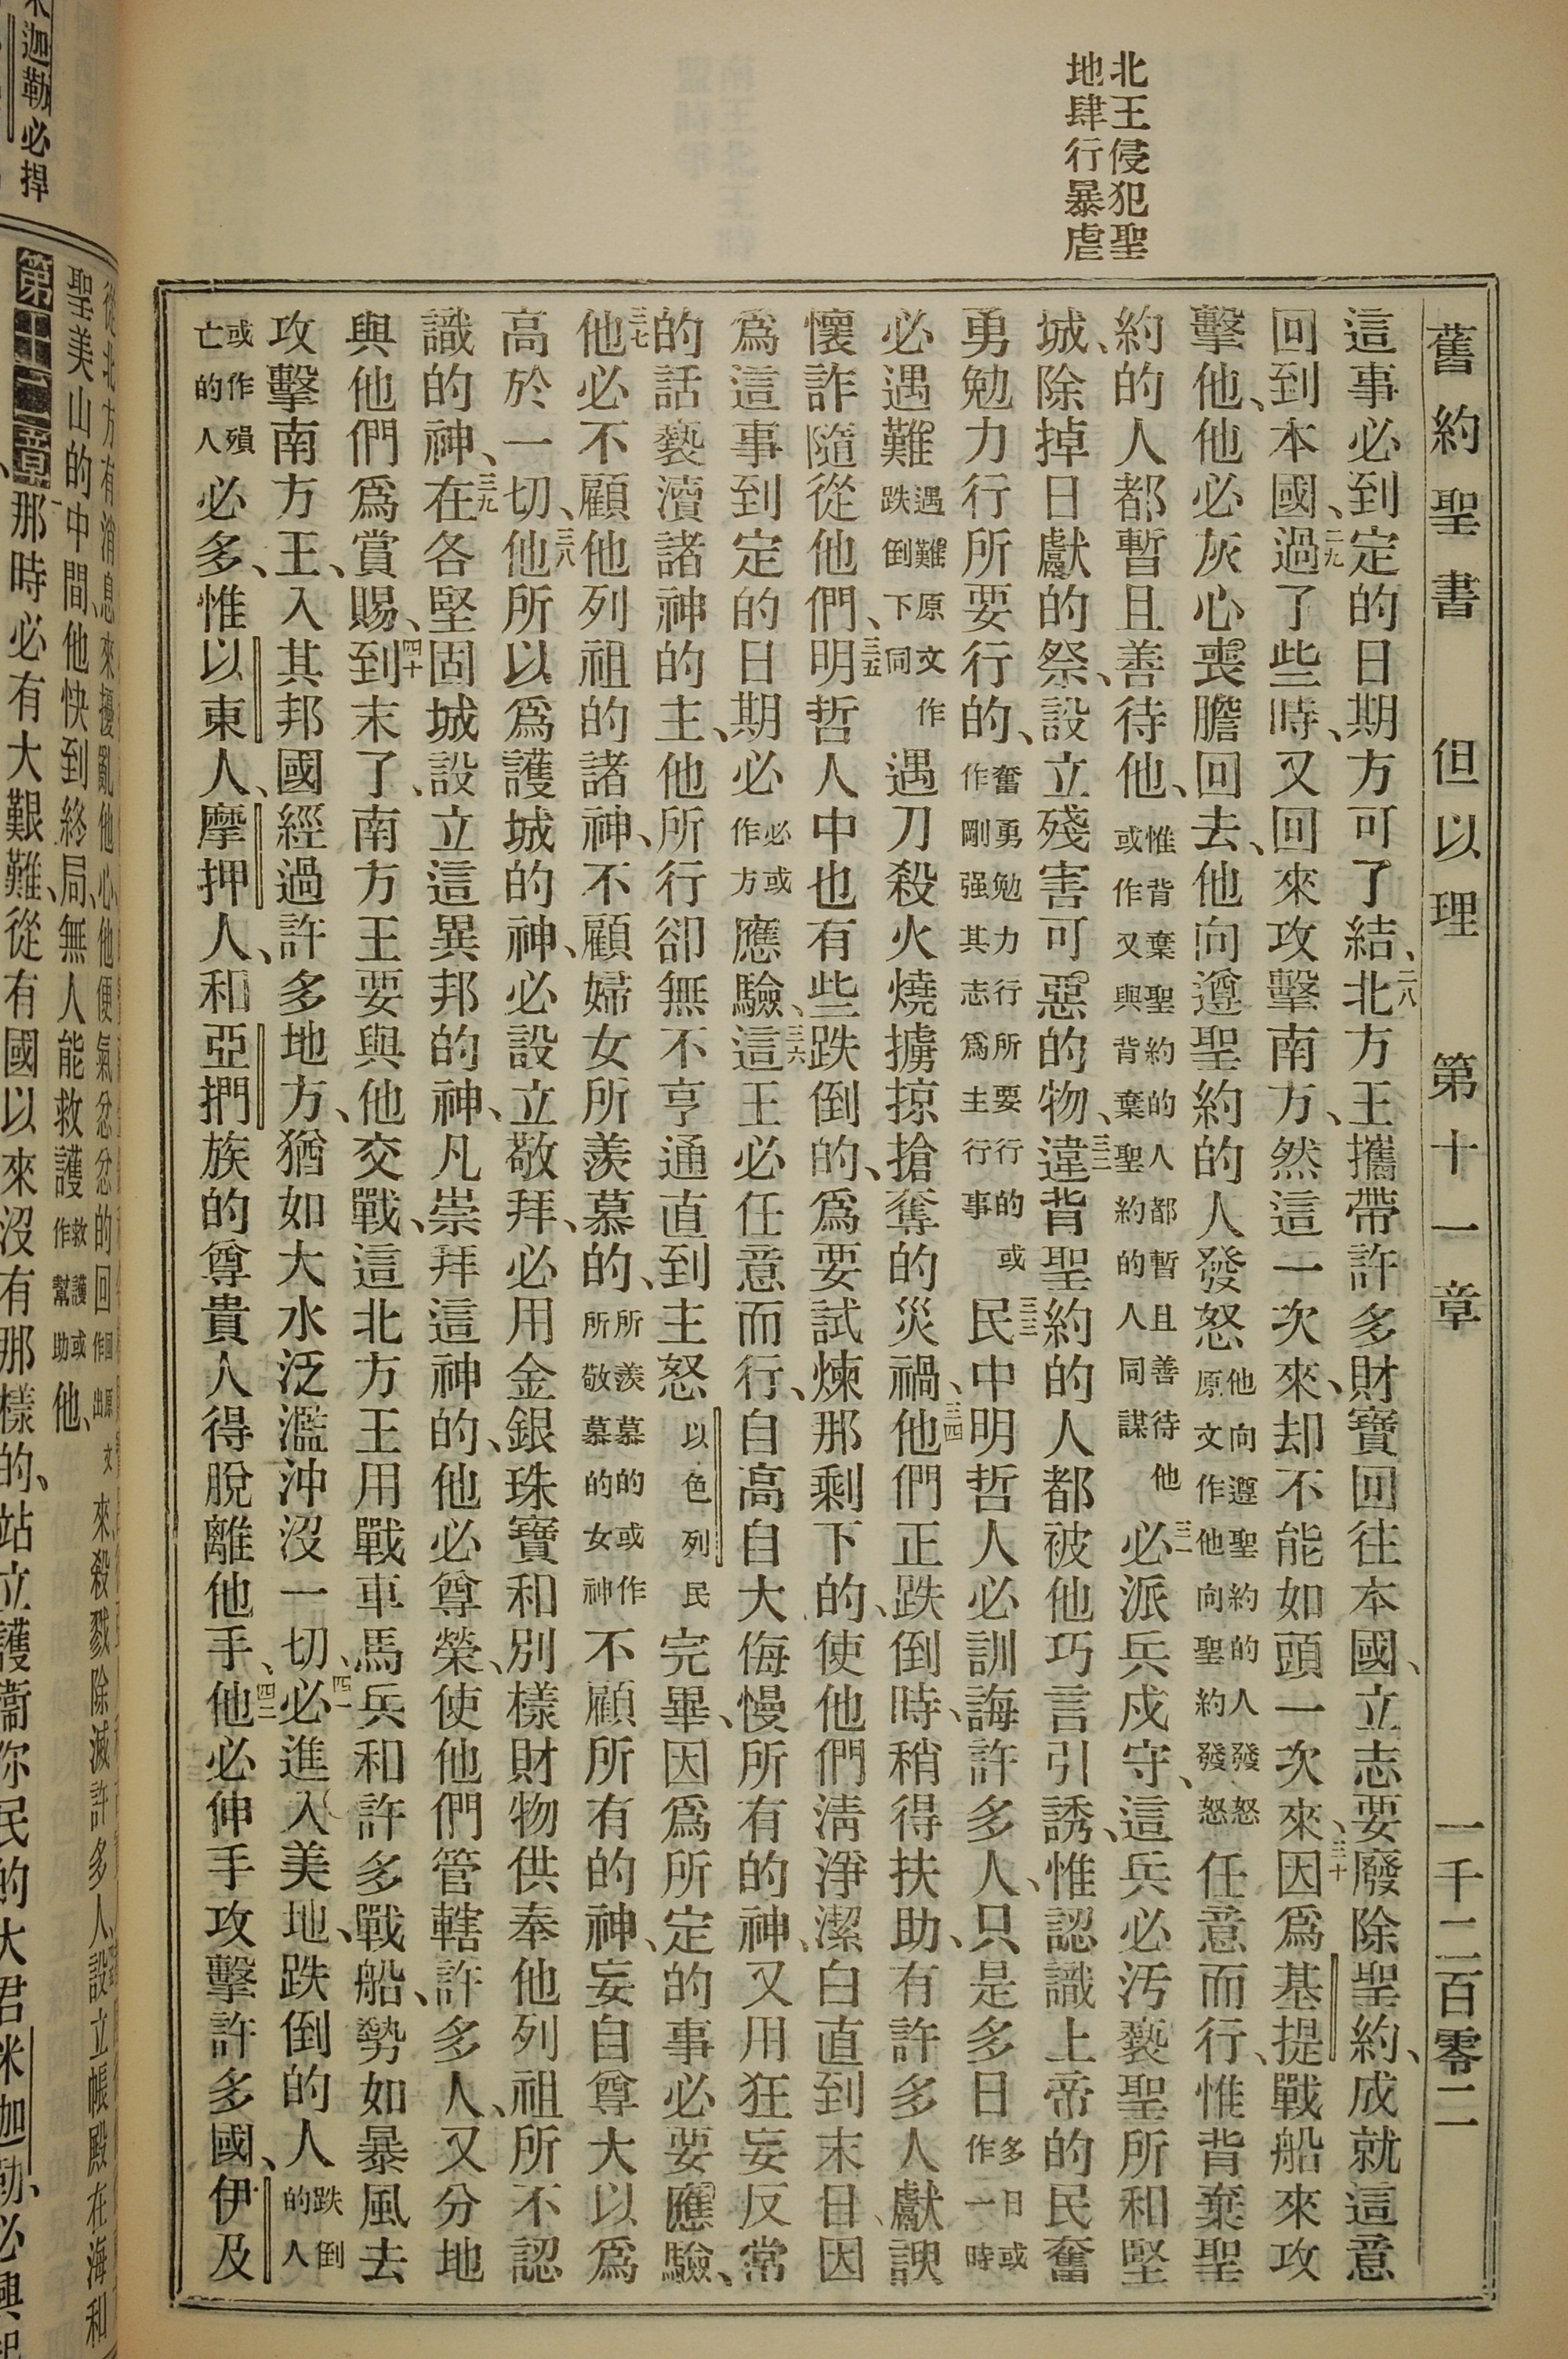 北王侵犯聖
地肆行暴虐
舊約聖書 但以理 第十一章 一千二百零二
這事必到定的日期方可了結、二八北方王攜帶許多財寶回往本國、立志要廢除聖約、成就這意
回到本國、二九過了些時、又回來攻擊南方、然這一次來、却不能如頭一次來、三十因爲基提戰船來攻
擊他、他必灰心喪膽回去、他向遵聖約的人發怒他向遵聖約的人發怒原文作他向聖約發怒任意而行、惟背棄聖
約的人都暫且善待他、惟背棄聖約的人都暫且善待他或作又與背棄聖約的人同謀三一必派兵戍守、這兵必污褻聖所和堅
城、除掉日獻的祭、設立殘害可惡的物、三二違背聖約的人都被他巧言引誘、惟認識上帝的民奮
勇勉力行所要行的、奮勇勉力行所要行的或作剛强其志爲主行事三三民中明哲人必訓誨許多人、只是多日多日或作一時
必遇難遇難原文作跌倒下同遇刀殺火燒擄掠搶奪的災禍、三四他們正跌倒時、稍得扶助、有許多人獻諛
懷詐隨從他們、三五明哲人中也有些跌倒的、爲要試煉那剩下的、使他們淸淨潔白直到末日、因
爲這事到定的日期必必或作方應驗、三六這王必任意而行、自高自大侮慢所有的神、又用狂妄反常
的話褻瀆諸神的主、他所行卻無不亨通直到主怒以色列民完畢、因爲所定的事必要應驗、
三七他必不顧他列祖的諸神、不顧婦女所羨慕的、所羨慕的或作所敬慕的女神不顧所有的神、妄自尊大以爲
高於一切、三八他所以爲護城的神、必設立敬拜、必用金銀珠寶和別樣財物供奉他列祖所不認
識的神、三九在各堅固城設立這異邦的神、凡崇拜這神的、他必尊榮、使他們管轄許多人、又分地
與他們爲賞賜、四十到末了、南方王要與他交戰、這北方王用戰車馬兵和許多戰船、勢如暴風去
攻擊南方王、入其邦國經過許多地方、猶如大水泛濫沖沒一切、四一必進入美地、跌倒的人跌倒的人
或作殞亡的人必多、惟以東人、摩押人、和亞捫族的尊貴人得脫離他手、四二他必伸手攻擊許多國、伊及
從北方有消息來擾亂他心、他便氣忿忿的回來殺戮除滅許多人、設立帳殿在海和
聖美山的中間、他快到終局、無人能救護救護或作幫助他、
第十二章一那時必有大艱難、從有國以來沒有那樣的、站立護衞你民的大君米迦勒、必興起
米迦勒必捍